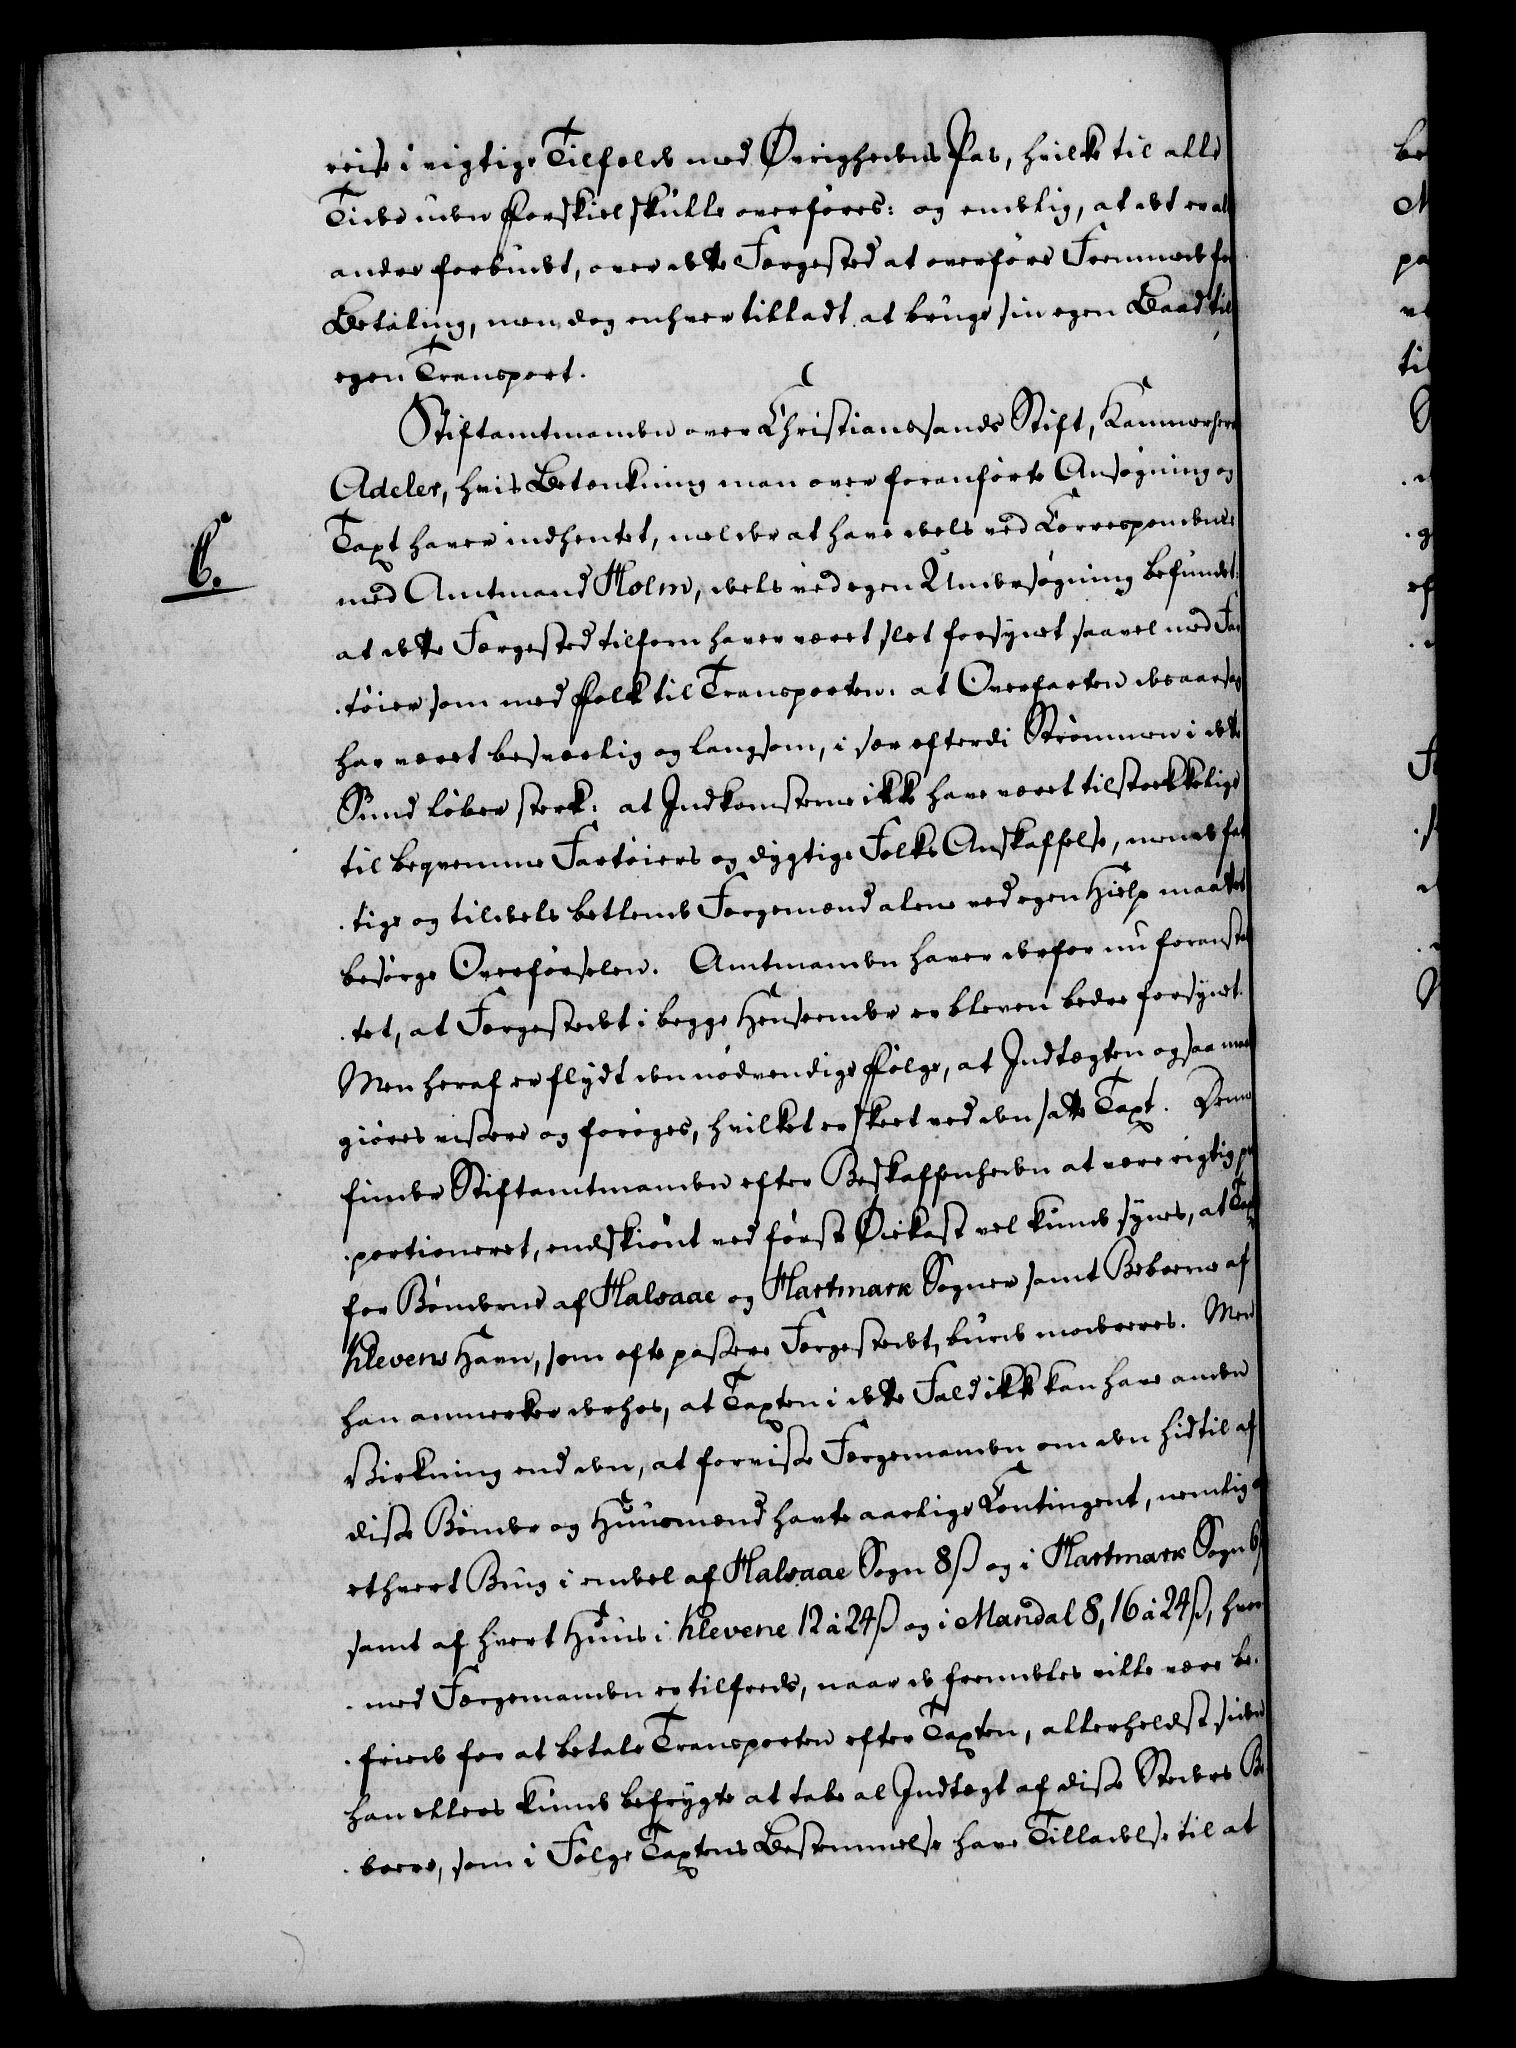 reise i vigtige Tilfælde med Øvrighedens Pas, hvilke til alle
Tider uden Forskiel skulle overføres: og endelig, at det er al
andre forbudet, over dette Færgested at overføre Fremmede for
Betaling, men dog enhver tilladt at bruge sin egen Baad til
egen Transport.
Stiftamtmanden over Christianssands Stift, Kammerherre
Adeler, hvis Betænkning man over foranførte Ansøgning og
C.
Taxt haver indhentet, melder at have deels ved Correspondence
med Amtmand Holm, deels ved egen Undersøgning befundet:
at dette Færgested tilforn haver været slet forsynet saavel med Far
tøier som med Folk til Transporten: at Overfarten desaarsag
har været besværlig og langsom, i sær efterdi Strømmen i dette
Sund løber sterk: at Indkomsterne ikke have været tilstrækkelige
til beqvemme Fartøiers og dygtige Folks Anskaffelse, mens fat
tige og tildeels betlende Færgemænd alene ved egen Hielp maattet
besørge Overførselen. Amtmanden haver derfor nu foranstal
tet, at Færgestedet i begge Henseender er bleven bedre forsynet.
Men heraf er flydt den nødvendige Følge, at Indtægten ogsaa maatte
giøres vissere og forøges, hvilket er skeet ved den satte Taxt. Denne
finder Stiftamtmanden efter Beskaffenheden at være rigtig pro
portioneret, endskiønt ved første Øiekast vel kunde synes, at Taxten
for Bønderne af Halsaae og Hartmark Sogner samt Beboerne af
Klevens Havn, som ofte passere Færgestedet, burde modereres. Men
han anmerker derhos, at Taxten i dette Fald ikke kan have anden
Virkning end den, at forvisse Færgemanden om den hidtil af
disse Bønder og Huusmænd havte aarlige Contingent, nemlig af
ethvert Brug i endeel af Halsaae Sogn 8 ß og i Hartmark Sogn 6 ß
samt af hvert Huus i Klevene 12 à 24 ß og i Mandal 8, 16 à 24 ß, hvor
med Færgemanden er tilfreds, naar de fremdeles ville være be
friede for at betale Transporten efter Taxten, allerheldst siden
han ellers kunde befrygte at tabe al Indtægt af disse Steders Be
boere, som i Følge Taxtens Bestemmelse have Tilladelse til at